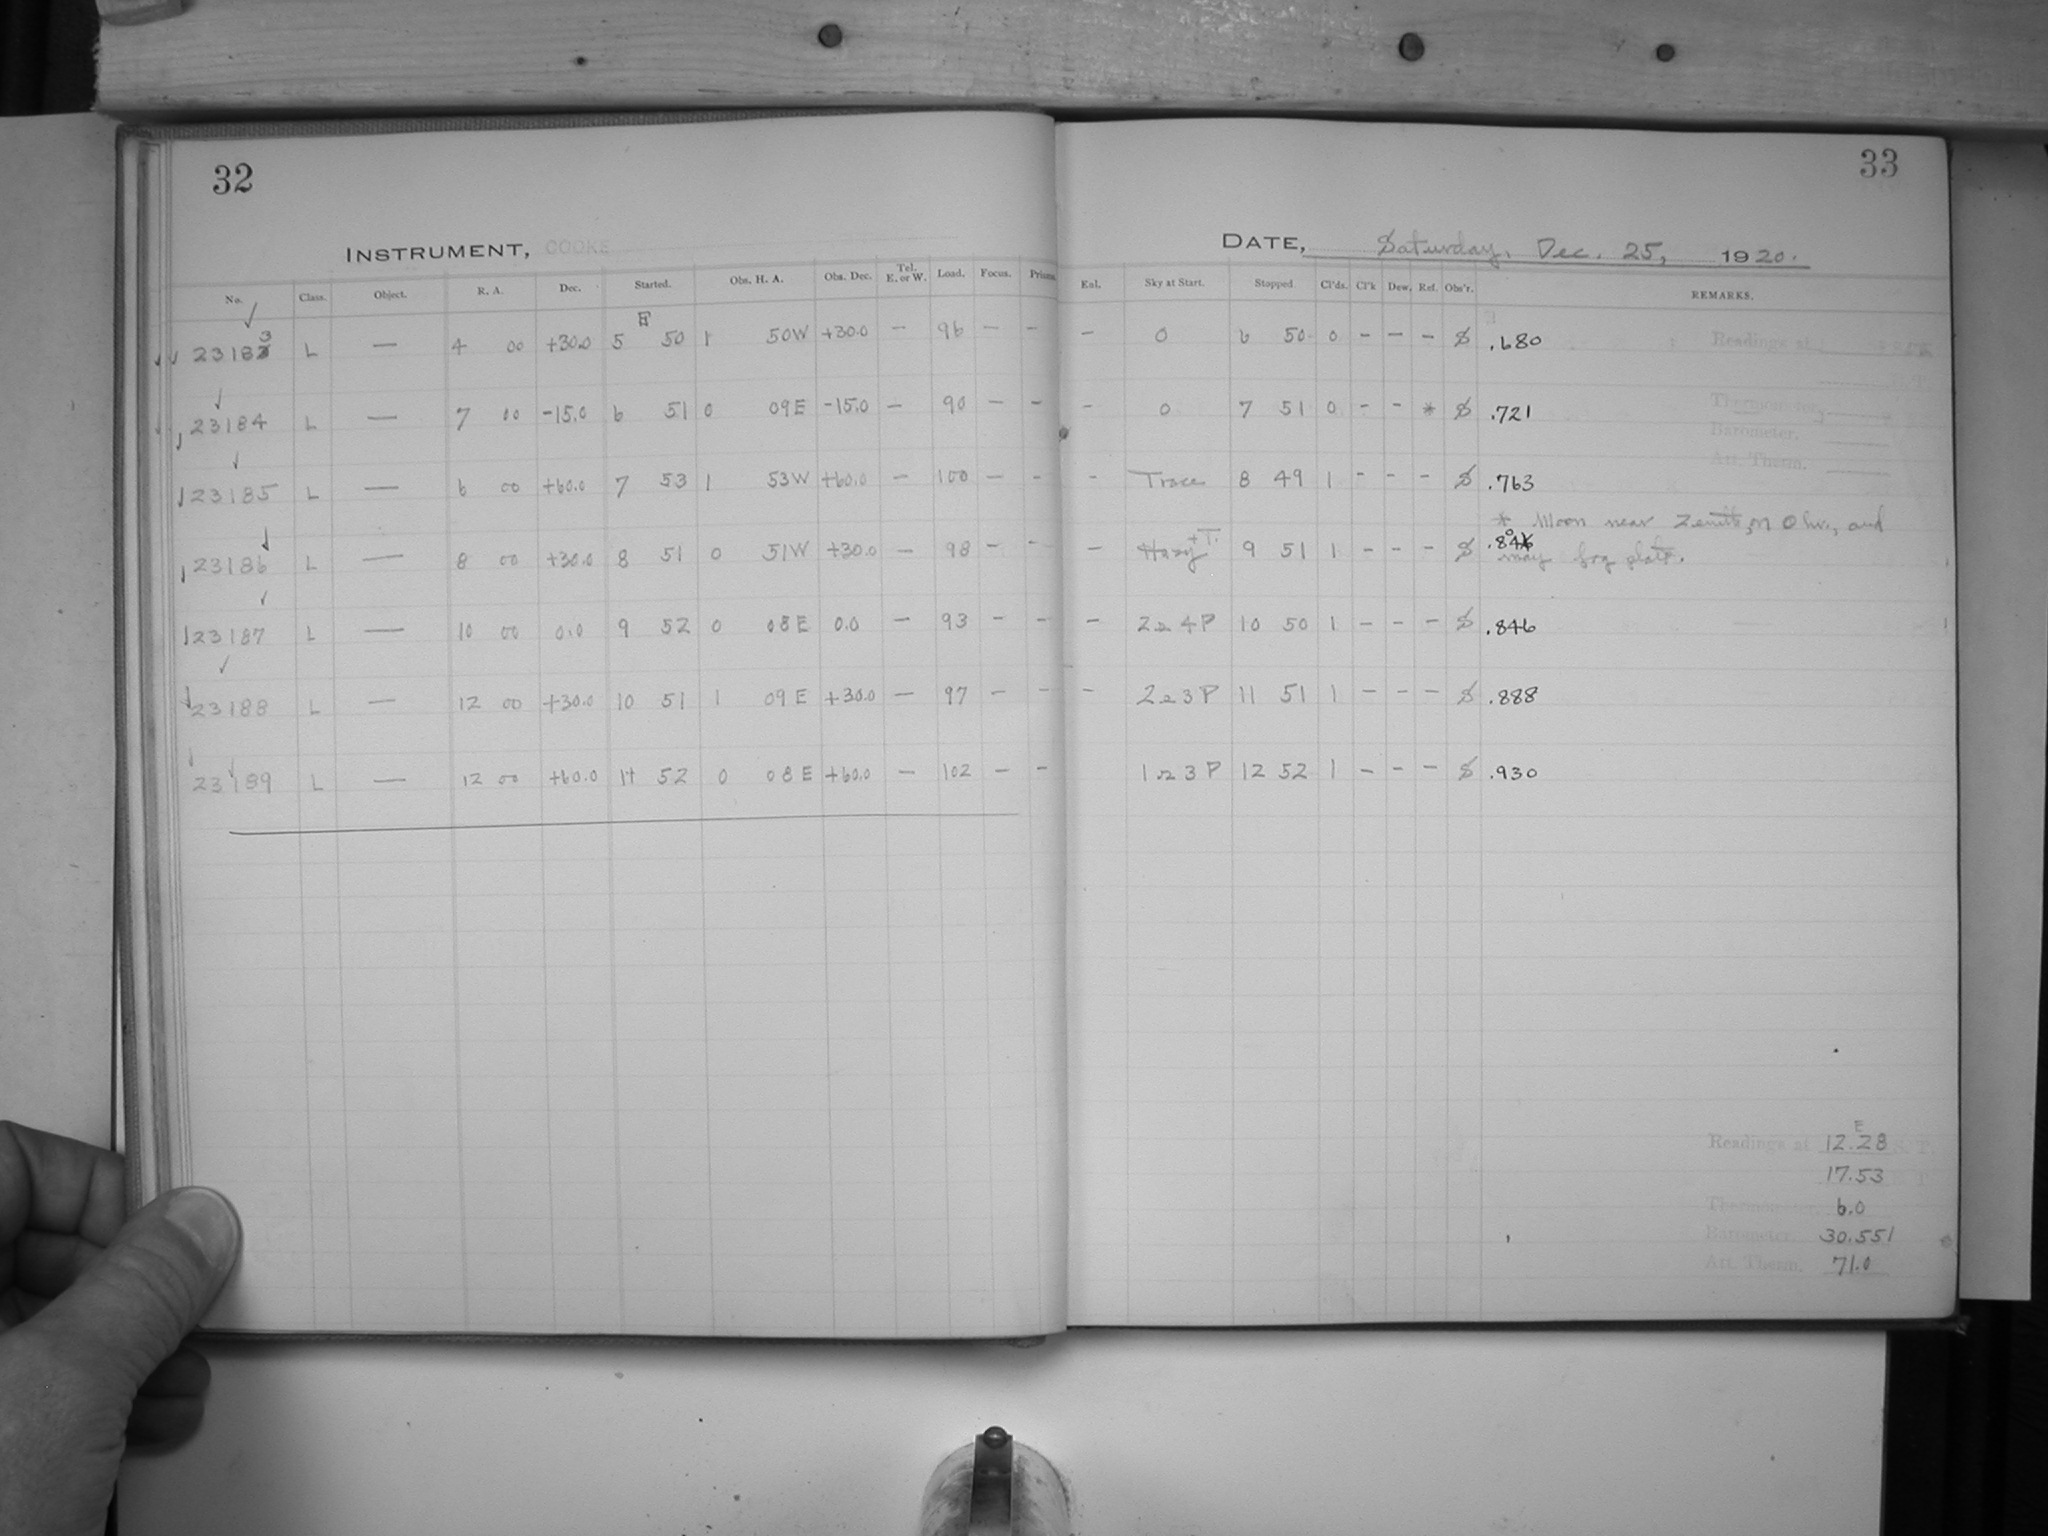 32
33
INSTRUMENT, COOKE
DATE, Saturday, Dec. 25, 1920.
No. Class. Object. R. A. Dec. Started. Obs. H. A. Obs. Dec. Tel. E. or W. Load. Focus. Prisms. Enl. Sky at Start. Stopped Cl'ds. Cl'k Dew. Ref. Obs'r. REMARKS.
E
23183 L — 4 00 +30.0 5 50 1 50W +30.0 — 96 — — — 0 6 50 0 — — — S .680
23184 L — 7 00 -15.0 6 51 0 09E -15.0 — 90 — — - 0 7 51 0 - - * S .721
23185 L — 6 00 +60.0 7 53 1 53W +60.0 — 100 — - - Trace 8 49 1 - - - S .763
* Moon near Zenith, on 0 hr., and
23186 L — 8 00 +30.0 8 51 0 51W +30.0 — 98 — - — Hazy +T. 9 51 1 — — — S .80
may fog plate.
23187 L — 10 00 0.0 9 52 0 08E 0.0 — 93 — — — 2 a 4 P 10 50 1 — — — S .846
23188 L — 12 00 +30.0 10 51 1 09E +30.0 — 97 — — — 2 a 3 P 11 51 1 — — — S .888
23189 L — 12 00 +60.0 11 52 0 08E +60.0 — 102 — — 1 a 3 P 12 52 1 — — — S .930
E
Readings at 12.28 S. T.
17.53
Thermometer, 6.0
Barometer. 30.551
Att. Therm. 71.0